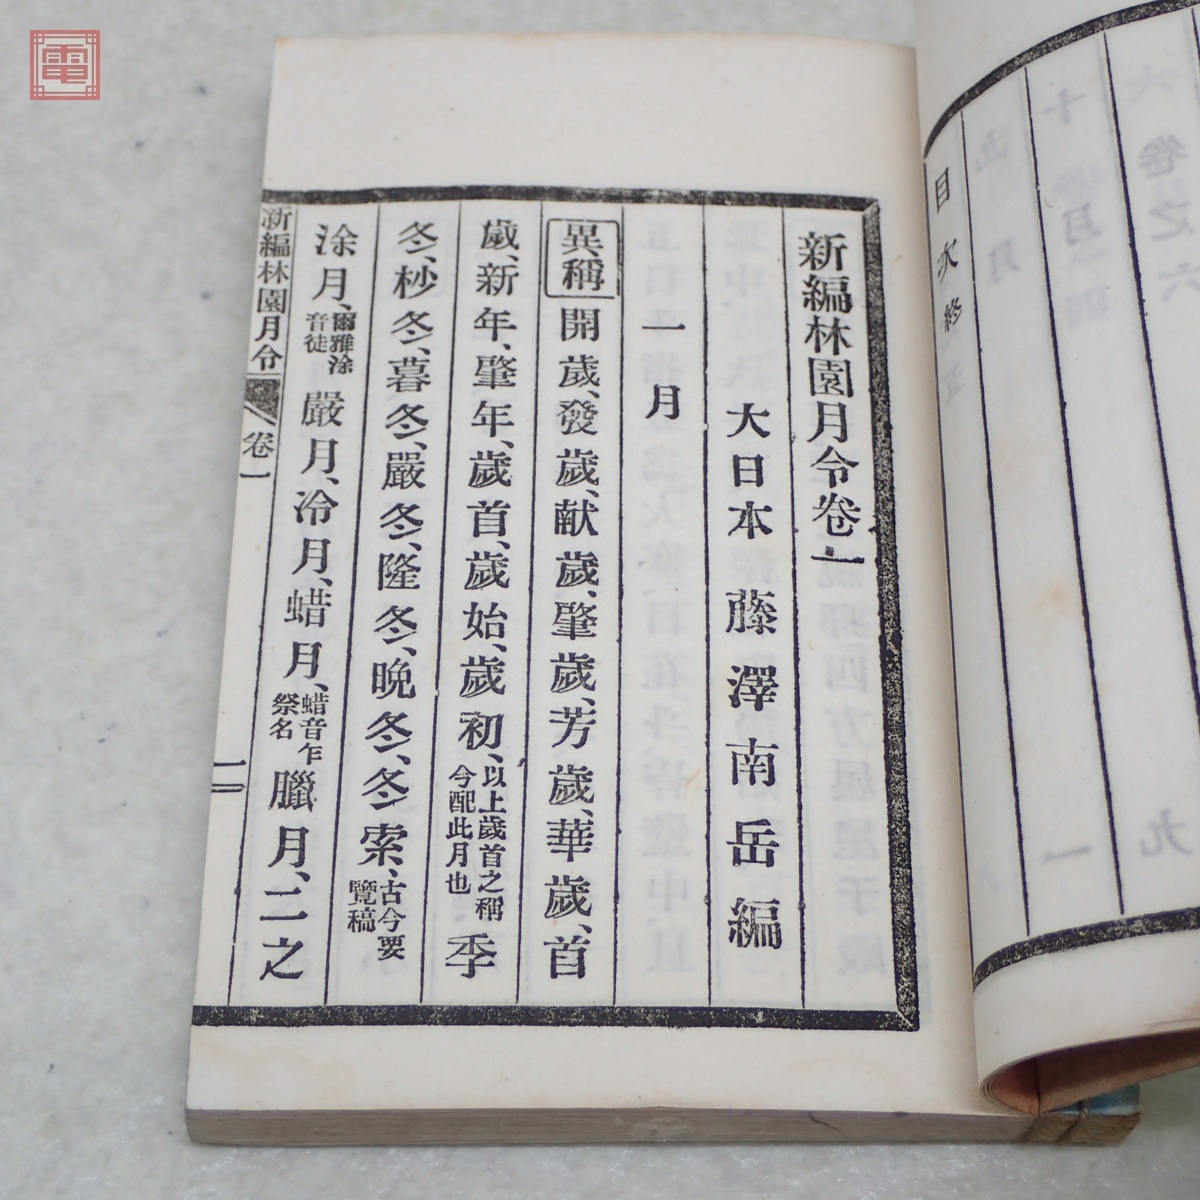 電
目次終
新編林園月令卷一
大日本 藤澤南岳編
一月
異稱 開歲、發歲、献歲、肇歲、芳歲、華歲、首
歲、新年、肇年、歲首、歲始、歲初、以上歲首之稱今配此月也 季
冬、杪冬、暮冬、嚴冬、隆冬、晩冬、冬索、古今要覽稿
涂月、爾雅涂音徒 嚴月、冷月、蜡月、蜡音乍祭名 臘月、二之
新編林園月令 卷一 一